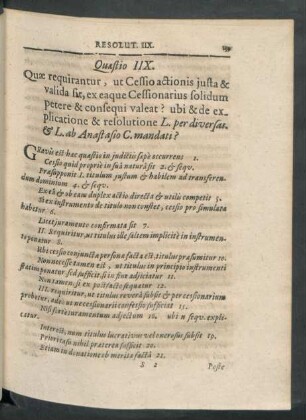 RESOLUT. IIX.
Quæstio IIX.
Quæ requirantur, ut Cessio actionis justa &
valida sit, ex eaque Cessionarius solidum
petere & consequi valeat? ubi & de ex-
plicatione & resolutione L. per diversas.
& L. ab Anastasio C. mandati?
GRavis est hæc quæstio in judiciis sæpè occurrens 1.
Cessio quid propriè in suâ naturâ sit 2. & seqv.
Præsupponit I. titulum justum & habilem ad transferen-
dum dominium 4. & seqv.
Ex eâ & ob eam duplex actio directa & utilis competit 5.
Si ex instrumento de titulo non constet, cessio pro simulata
habetur 6.
Licet juramento confirmata sit 7.
II. Requiritur, ut titulus ille saltem implicitè in instrumen-
reperiatur 8.
Ibi cessio conjuncta persona facta est, tituli præsumitor 10.
Non necessarium est, ut titulus in principio instrumenti
statim ponatur sed sufficit si in fine adjiciatur 11.
Non tamen, si ex postfacto sequatur 12.
III. requiritur, ut titulus reverâ subsit & per cessionarium
probetur, adeò ut necessionarii confessio sufficiat 13.
Nisi sit & juramentum adjectum 16. ubi n seqv. expli-
catur.
Interest, num titulus lucrativus vel onerosus subsit 19.
Prioritas nihil præterea sufficit 20.
Etiam in donatione ob merita factâ 21.
S 2
Poste